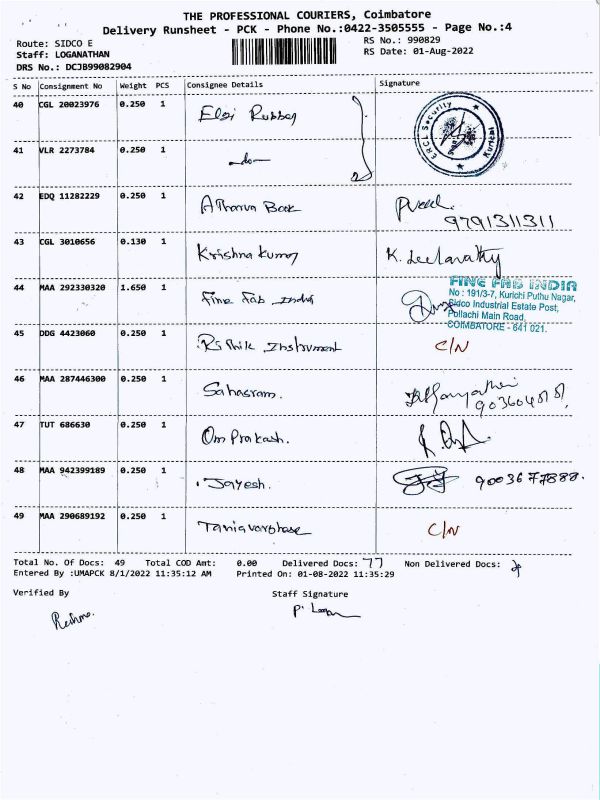 THE PROFESSIONAL COURIERS, Coimbatore
Delivery Runsheet - PCK - Phone No.:0422-3505555 - Page No.:4
Route: SIDCO E
RS No.: 990829
Staff: LOGANATHAN
RS Date: 01-Aug-2022
DRS No.: DCJB99082904
S No Consignment No Weight PCS Consignee Details Signature
40 CGL 20023976 0.250 1 Elgi Rubber
ERCL Security Kurichi
41 VLR 2273784 0.250 1 -do-
42 EDQ 11282229 0.250 1 Atharva Bak
9791311311
43 CGL 3010656 0.130 1 Krishna Kumar K. Leelavathy
44 MAA 292330320 1.650 1 Fine Fab India
FINE FAB INDIA
No : 191/3-7, Kurichi Puthu Nagar,
Sidco Industrial Estate Post,
Pollachi Main Road,
COIMBATORE - 641 021.
45 DDG 4423060 0.250 1 Instrument C/N
46 MAA 287446300 0.250 1 Sahasram.
47 TUT 686630 0.250 1 Om Prakash.
48 MAA 942399189 0.250 1 Jayesh. 9003677888.
49 MAA 290689192 0.250 1 C/N
Total No. Of Docs: 49 Total COD Amt: 0.00 Delivered Docs: 77 Non Delivered Docs: 2
Entered By :UMAPCK 8/1/2022 11:35:12 AM Printed On: 01-08-2022 11:35:29
Verified By Staff Signature
Reshma. P. Logan